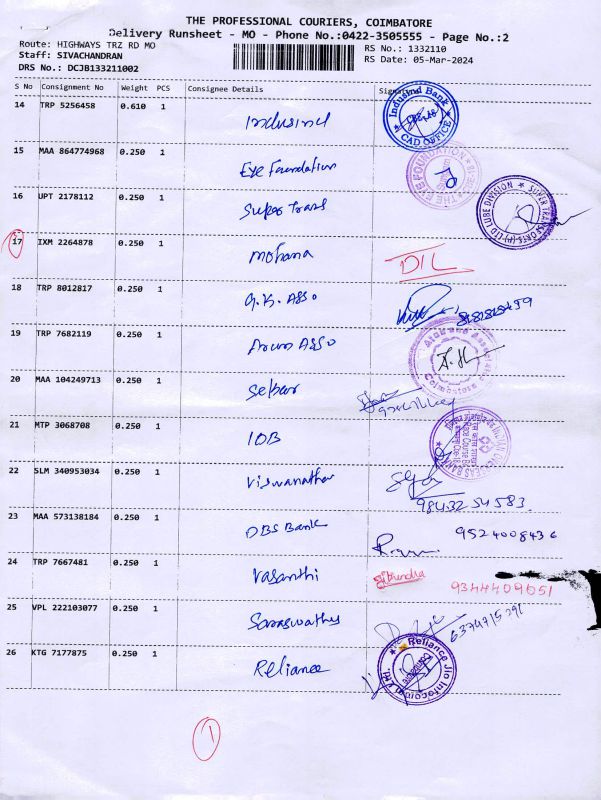 THE PROFESSIONAL COURIERS, COIMBATORE
Delivery Runsheet - MO - Phone No.:0422-3505555 - Page No.:2
Route: HIGHWAYS TRZ RD MO
RS No.: 1332110
Staff: SIVACHANDRAN
RS Date: 05-Mar-2024
DRS No.: DCJB133211002
S No Consignment No Weight PCS Consignee Details
14 TRP 5256458 0.610 1 Indusind
IndusInd Bank
CAD OFFICE
15 MAA 864774968 0.250 1 Eye Foundation
THE EYE FOUNDATION
16 UPT 2178112 0.250 1 Super Trans
SUPER TRANSPORTS (P) LTD LUBE DIVISION
17 IXM 2264878 0.250 1 Mohana DIL
18 TRP 8012817 0.250 1 G.K. ASSO
19 TRP 7682119 0.250 1 Arun ASSO
Coimbatore
20 MAA 104249713 0.250 1 Sekar
21 MTP 3068708 0.250 1 IOB
INDIAN OVERSEAS BANK
22 SLM 340953034 0.250 1 Viswanathan
98432 54583
23 MAA 573138184 0.250 1 DBS Bank 9524008436
24 TRP 7667481 0.250 1 Vasanthi
9344409051
25 VPL 222103077 0.250 1 Saraswathy
26 KTG 7177875 0.250 1 Reliance
Reliance Jio Infocomm Ltd.
1